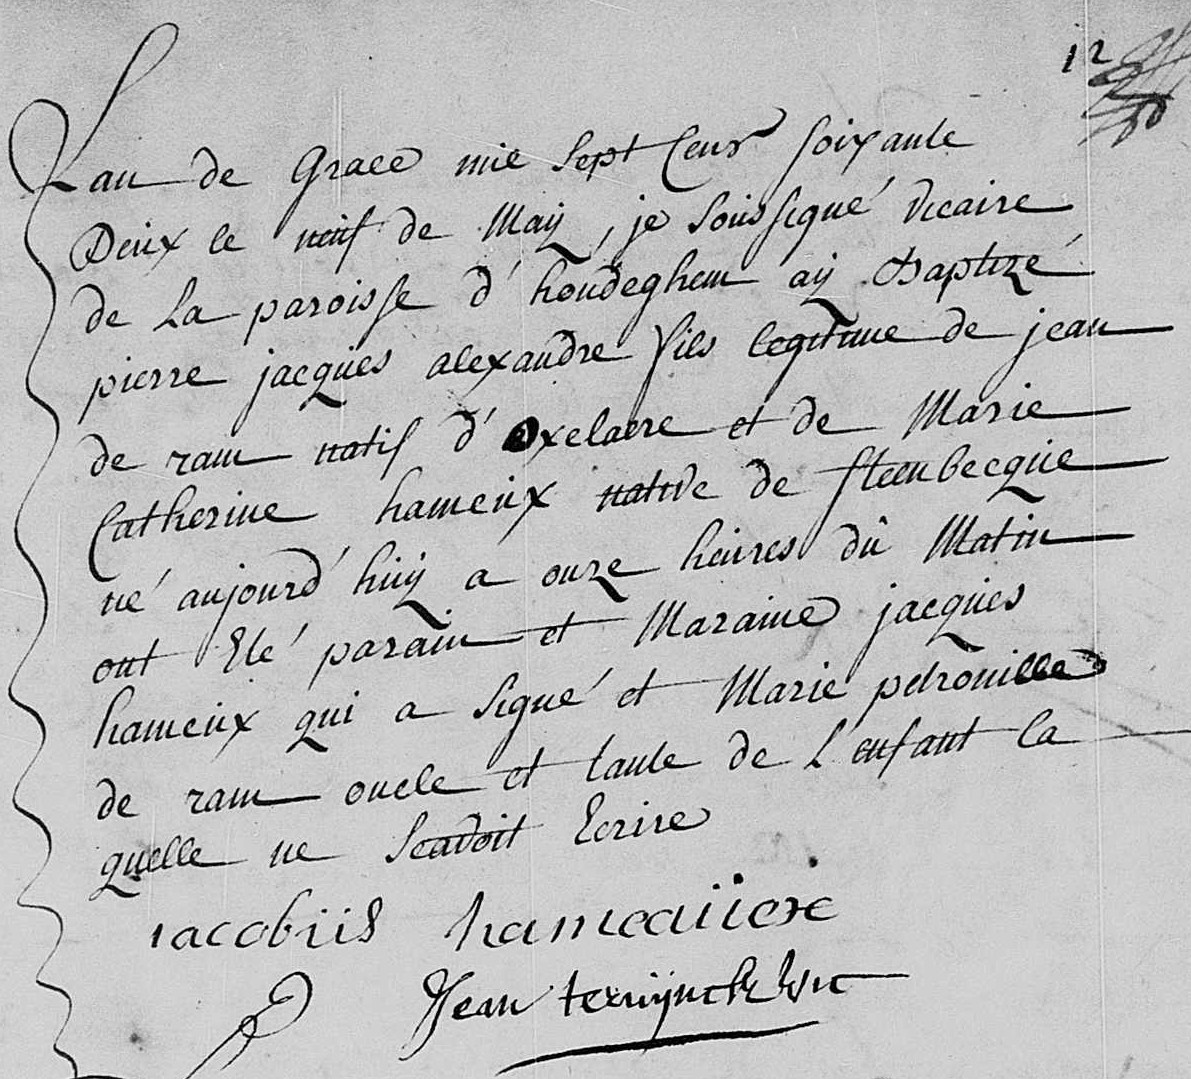 12
Lan de Grace mil sept Cens soixante
Deux le neuf de Maÿ, je soussigné vicaire
de La paroisse d'houdeghem aÿ Baptizé
pierre jacques alexandre fils legitime de jean
de ram natif d'oxelaere et de Marie
Catherine hameux native de steenbecque
né aujourd'huÿ a onze heures du Matin
ont Eté parain et Maraine jacques
hameux qui a signé et Marie petronille
de ram oncle et tante de L'enfant la
quelle ne scavoit Ecrire
iacobus
Jean terrijnck vic